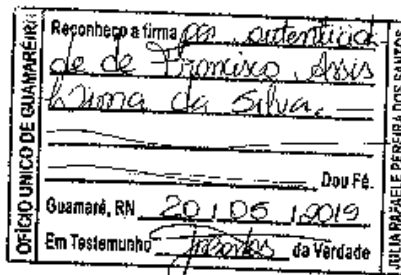 OFÍCIO ÚNICO DE GUAMARÉ/RN
Reconheço a firma por autenticida
de de Francisco Assis
Lima da Silva.
Dou Fé.
Guamaré, RN 20/05/2019
Em Testemunho da Verdade
JÚLIA RAFAELE PEREIRA DOS SANTOS